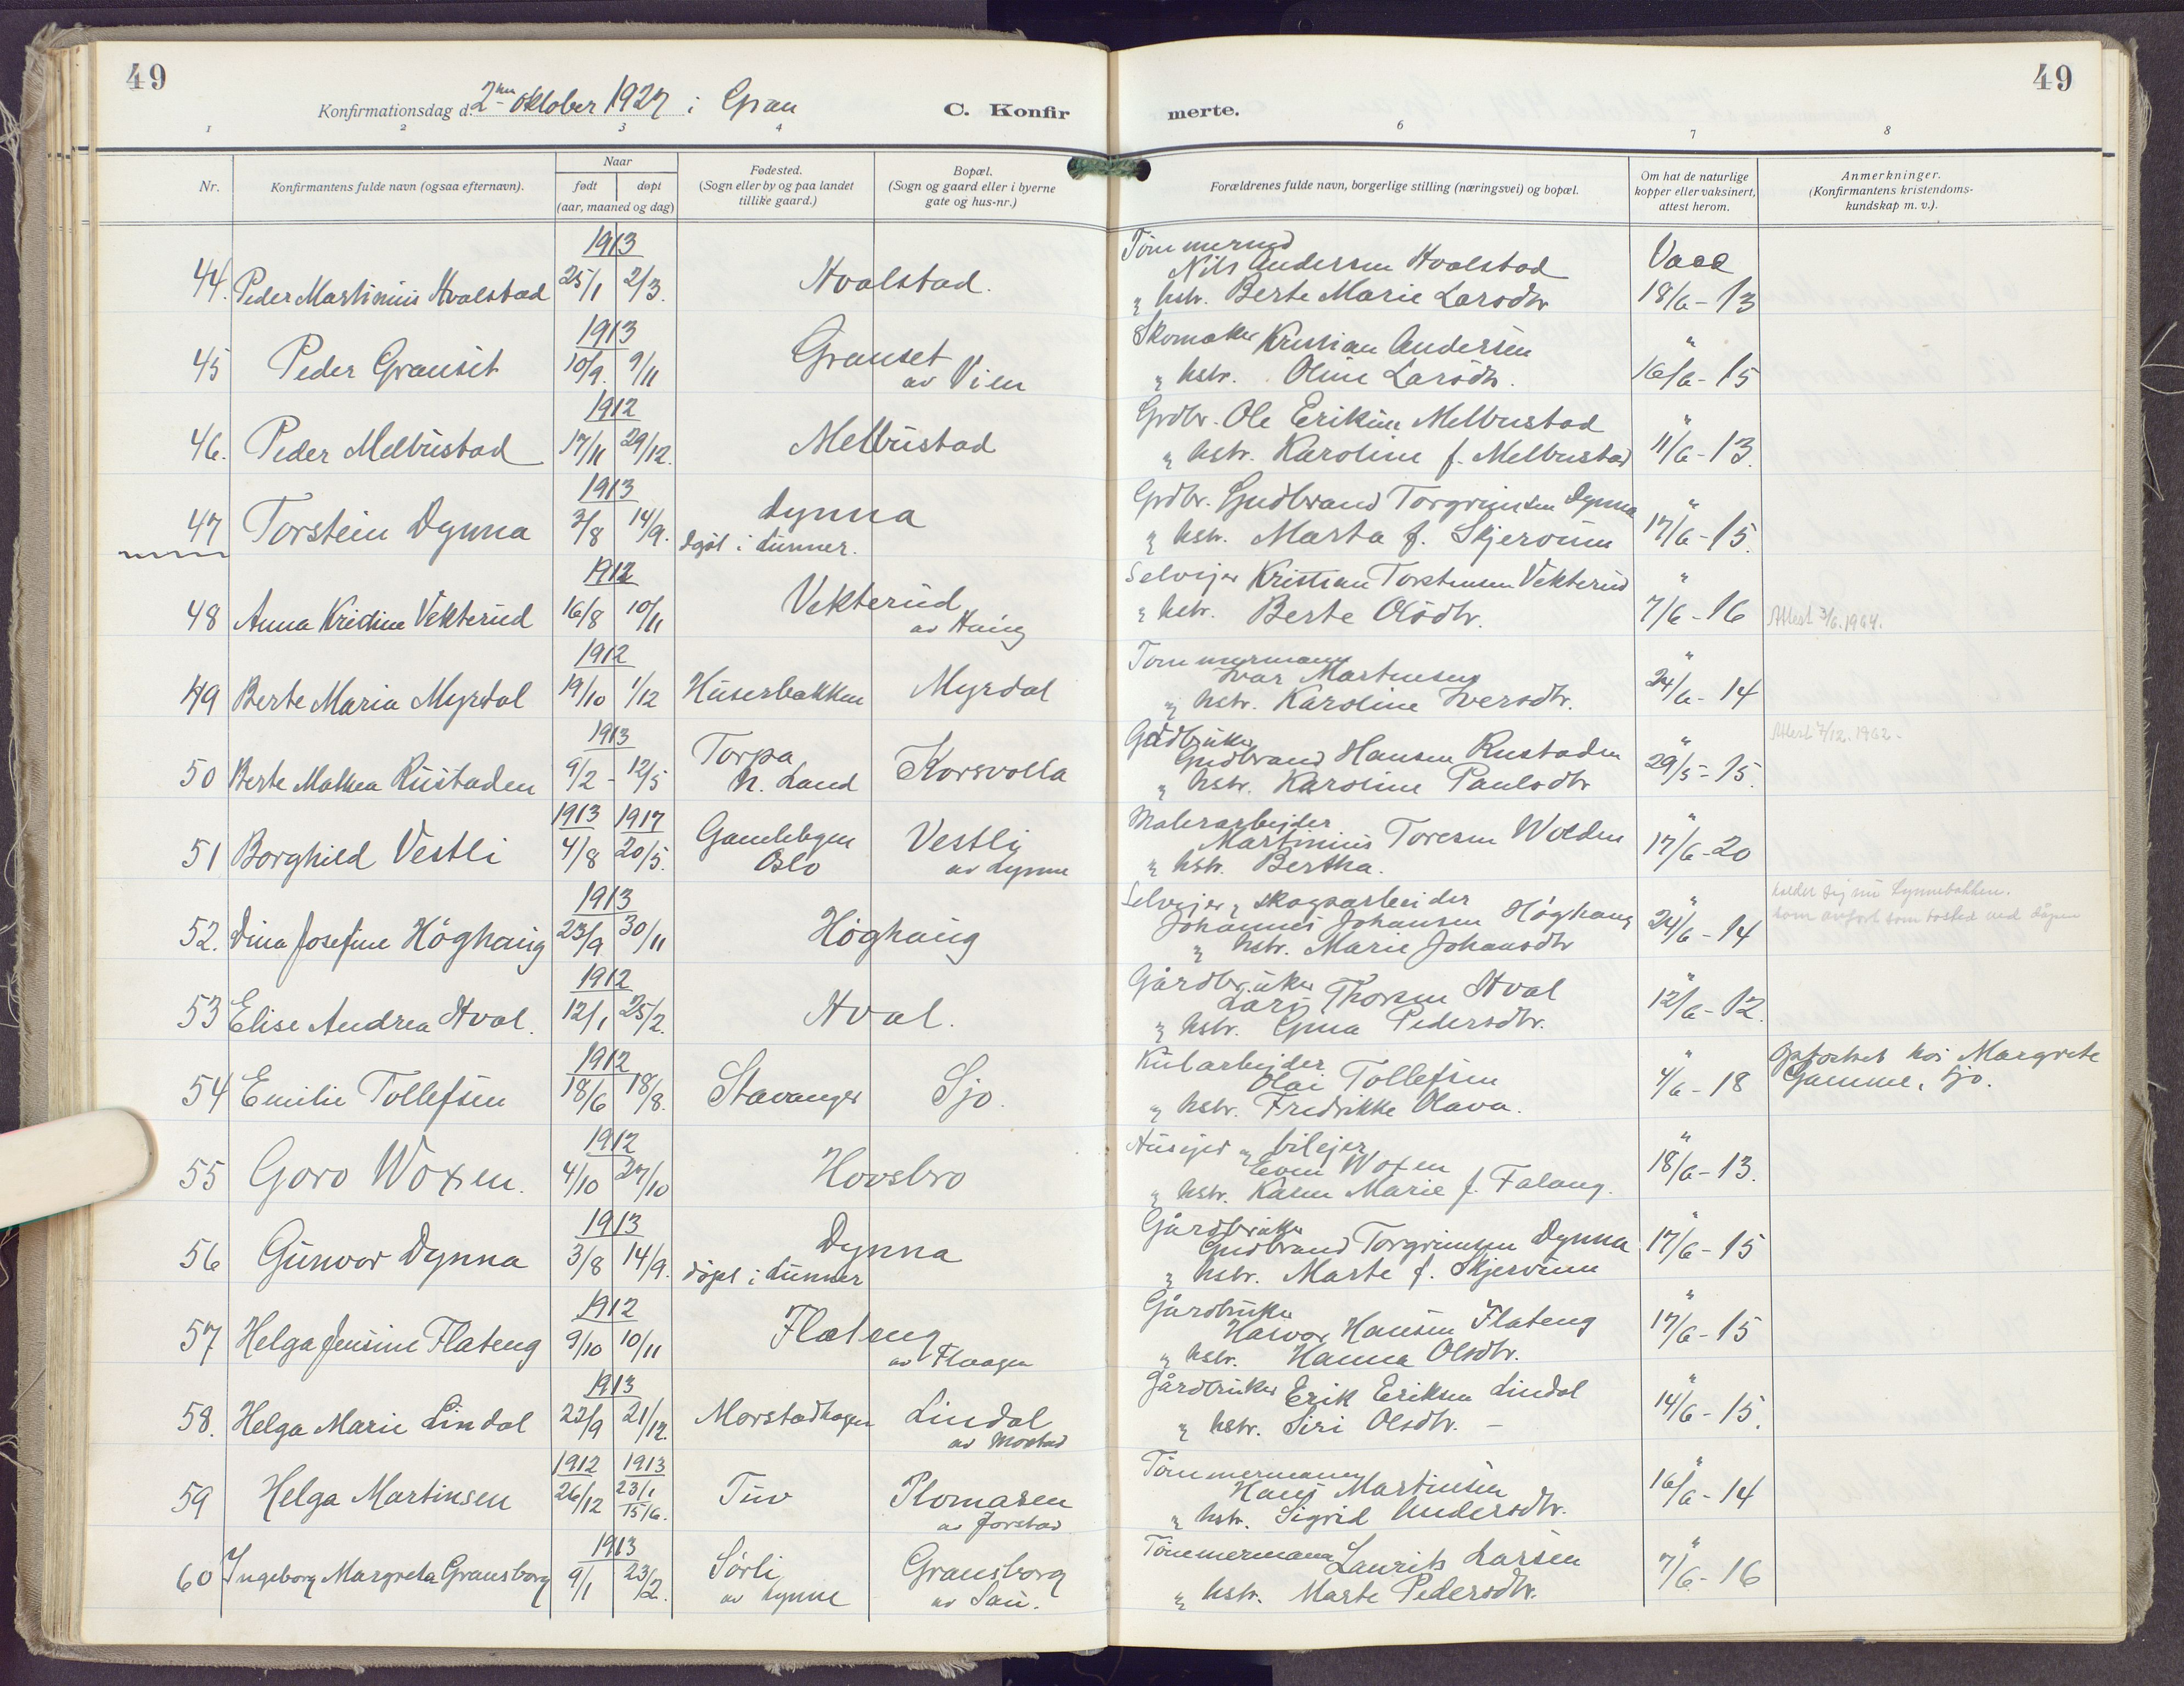 49
49
Konfirmationsdag d. 2den oktober 1927 i Gran
C. Konfirmerte.
1 2 3 4 6 7 8
Nr.
Konfirmantens fulde navn (ogsaa efternavn).
Naar
født døpt
(aar, maaned og dag)
Fødested.
(Sogn eller by og paa landet
tillike gaard.)
Bopæl.
(Sogn og gaard eller i byerne
gate og hus-nr.)
Forældrenes fulde navn, borgerlige stilling (næringsvei) og bopæl.
Om hat de naturlige
kopper eller vaksinert,
attest herom.
Anmerkninger.
(Konfirmantens kristendoms-
kundskap m. v.).
1913 Tömmermd Vacc
44. Peder Martinius Hvalstad 25/1 2/3. Hvalstad. Nils Andersen Hvalstad
" hstr. Berte Marie Larsdtr 18/6-13
1913 Skomaker Kristian Andersen "
45 Peder Granset 10/9. 9/11 Granset
av Vien " hstr. Oline Larsdtr. 16/6-15
1912 Grdbr. Ole Eriksen Melbustad "
46. Peder Melbustad 17/11 29/12. Melbustad " hstr. Karoline f. Melbustad 11/6-13.
1913 Grdbr. Gudbrand Torgrimsen Dynna "
47 Torstein Dynna 3/8 14/9. Dynna
døpt i Lunner. " hstr. Marta f. Skjervum 17/6-15.
1912 Selvejer Kristian Torstensen Vekterud "
48 Anna Kristine Vekterud 16/8 10/11 Vekterud
av Haug " hstr. Berte Olsdtr. 7/6-16 Attest 3/6.1964.
1912 Tömmermann "
49 Berte Maria Myrdal 19/10 1/12 Huserbakken Myrdal Ivar Martinsen
" hstr. Karoline Iversdtr. 24/6-14
1913 Gårdbruker " Attest 7/12.1962.
50 Berte Mathea Rustaden 9/2 - 12/5 Torpa
N. Land Korsvolla Gudbrand Hansen Rustaden
" hstr. Karoline Paulsdtr 29/5-15.
1913 1917 Malerarbejder "
51 Borghild Vestli 4/8 20/5. Gamlebyen
Oslo Vestli
av Lynne Martinius Toresen Wolden
" hstr. Bertha. 17/6-20
1913 Selvejer, skogsarbeider " kalder sig nu Lynnebakken.
52. Dina Josefine Höghaug 23/9. 30/11 Höghaug Johannes Johansen Höghaug
" hstr. Marie Johansdtr 24/6-14 som anført som bosted ved dåpen
1912 Gårdbruker "
53 Elise Andrea Hval. 12/1 25/2. Hval. Lars Thorsen Hval
" hstr. Gina Pedersdtr. 12/6-12.
1912 Kularbejder " Opfostret hos Margrete
54 Emilie Tollefsen 18/6 18/8. Stavanger Sjo. Olai Tollefsen
" hstr. Fredrikke Olava. 4/6-18 Gamme, Sjo.
1912 Husejer & bilejer "
55 Goro Woxen. 4/10 27/10 Hovsbro Even Woxen
" hstr. Karen Marie f. Falang. 18/6-13.
1913 Gårdbruker "
56 Gunvor Dynna 3/8 14/9. Dynna
döpt i Lunner Gudbrand Torgrimsen Dynna
" hstr. Marte f. Skjervum 17/6-15
1912 Gårdbruker "
57 Helga Jensine Flateng 9/10 10/11 Flateng
av Flaagen Halvor Hansen Flateng
" hstr. Hanna Olsdtr. 17/6-15
1913 Gårdbruker Erik Eriksen Lindal "
58. Helga Marie Lindal 22/9 21/12. Morstadhagen Lindal
av Morstad " hstr. Siri Olsdtr. - 14/6-15.
1912 1913 Tömmermann "
59 Helga Martinsen 26/12 23/1 15/6. Tuv Plomasen
av Jorstad Hans Martinsen
" hstr. Sigrid Andersdtr. 16/6-14
1913 Tömmermann Laurits Larsen "
60 Ingeborg Margreta Gransborg 9/1 23/2. Sørli
av Lynne Gransborg
av San. " hstr. Marte Pedersdtr. 7/6-16